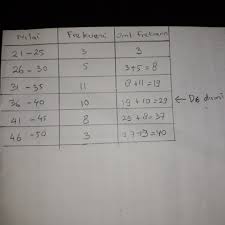 Nilai Frekuensi Jml frekuensi
21 - 25 3 3
26 - 30 5 3+5=8
31 - 35 11 8+11=19
36 - 40 10 19+10=29
41 - 45 8 29+8=37
46 - 50 3 37+3=40